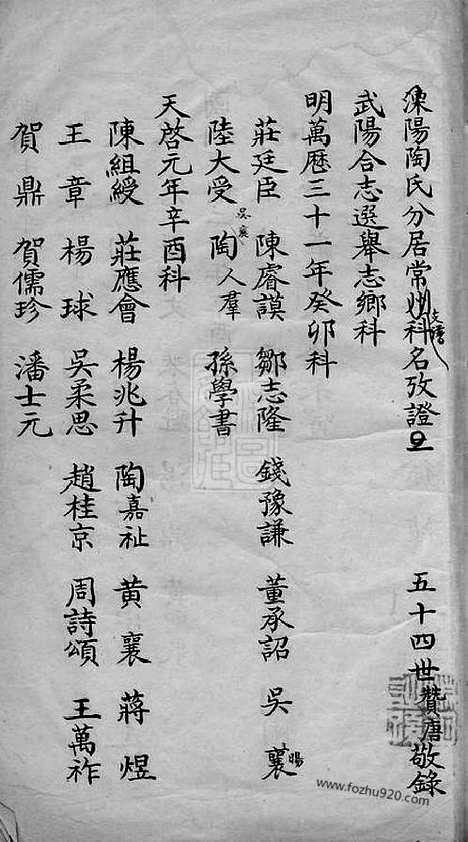 溧陽陶氏分居常州支譜科名攷證 五十四世贊唐敬錄
武陽合志選舉志鄉科
明萬歷三十一年癸卯科
莊廷臣 陳睿謨 鄒志隆 錢豫謙 董承詔 吳襄 暘
陸大受 吳襄 陶人羣 孫學書
天啓元年辛酉科
陳組綬 莊應會 楊兆升 陶嘉祉 黄襄 蔣煜
王章 楊球 吳柔思 趙桂京 周詩頌 王萬祚
賀鼎 賀儒珍 潘士元
www.fozhu920.com